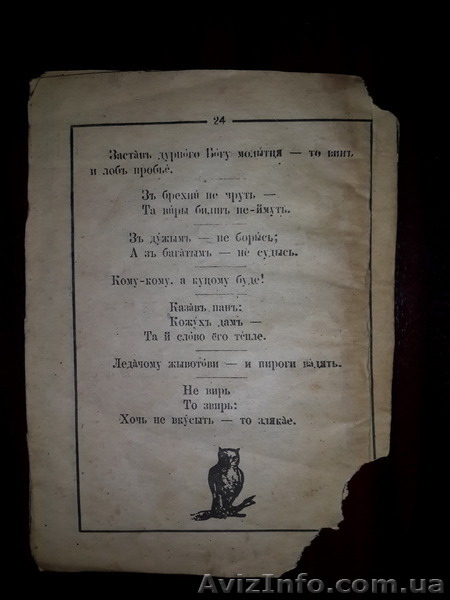 24
Заста́въ дурно́го Бо́гу молы́тця — то винъ
и лобъ пробье́.
Зъ брехни́ не мруть —
Та ви́ры билшъ не-ймуть.
Зъ ду́жымъ — не бори́сь;
А зъ бага́тымъ — не судысь.
Кому-кому, а куцому буде!
Каза́въ панъ:
Кожу́хъ дамъ —
Та й сло́во ёго́ те́пле.
Леда́чому жывото́ви — и пироги ва́дять.
Не вирь
То звирь:
Хочь не вку́сыть — то зляка́е.
AvizInfo.com.ua